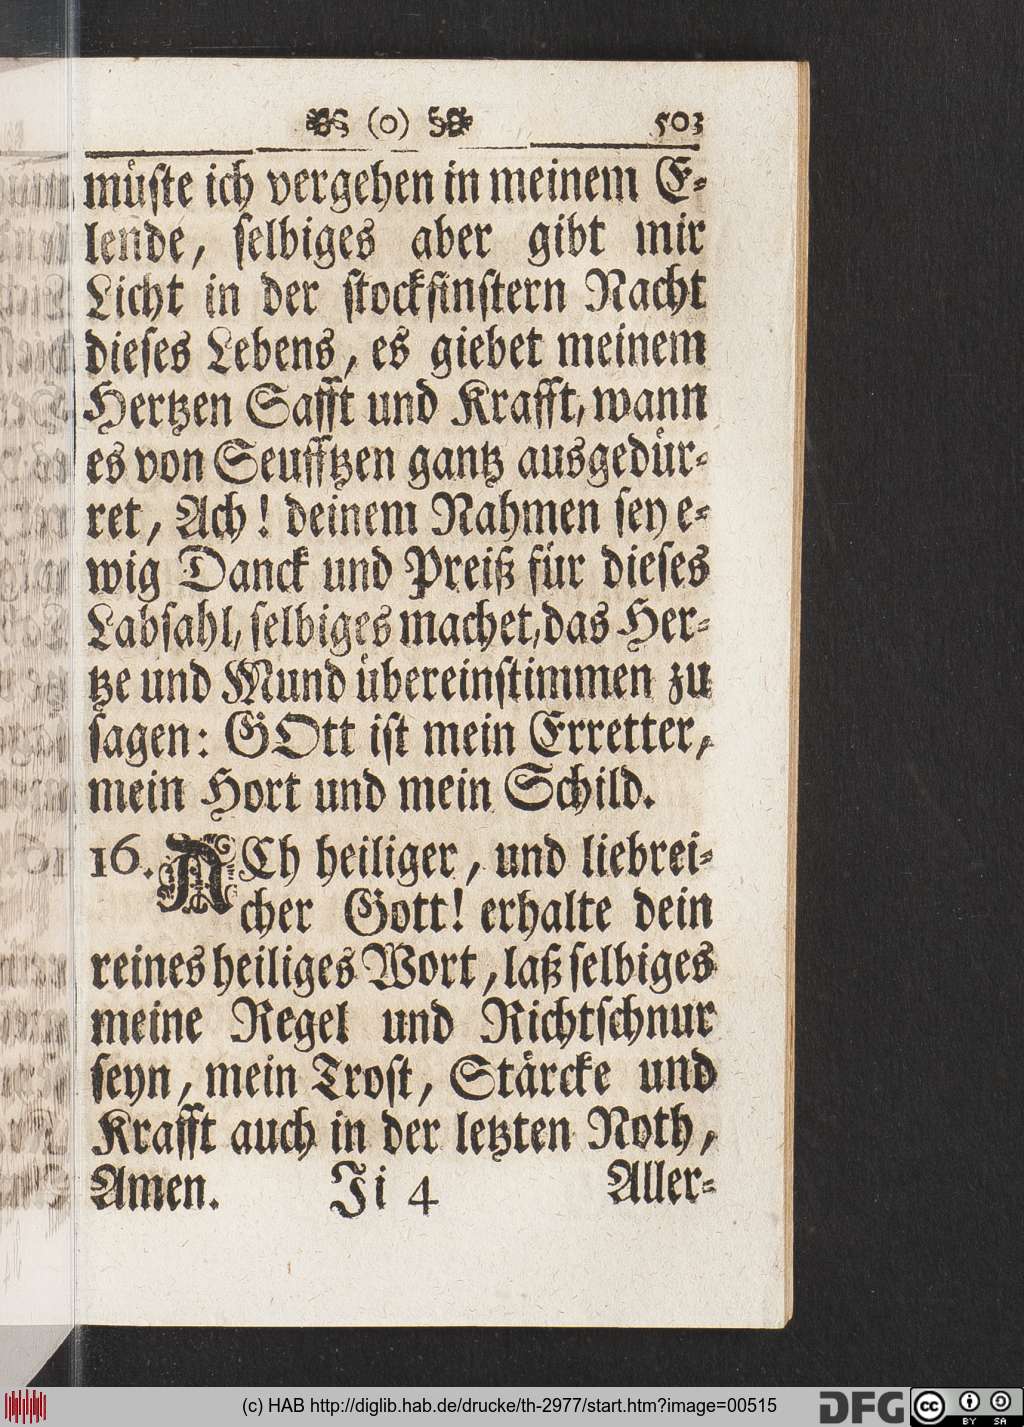 (o) 503
müste ich vergehen in meinem E-
lende, selbiges aber gibt mir
Licht in der stockfinstern Nacht
dieses Lebens, es giebet meinem
Hertzen Safft und Krafft, wann
es von Seufftzen gantz ausgedür-
ret, Ach! deinem Nahmen sey e-
wig Danck und Preiß für dieses
Labsahl, selbiges machet, das Her-
tze und Mund übereinstimmen zu
sagen: GOtt ist mein Erretter,
mein Hort und mein Schild.
16. ACh heiliger, und liebrei-
cher Gott! erhalte dein
reines heiliges Wort, laß selbiges
meine Regel und Richtschnur
seyn, mein Trost, Stärcke und
Krafft auch in der letzten Noth,
Amen. Ji 4 Aller-
(c) HAB http://diglib.hab.de/drucke/th-2977/start.htm?image=00515
DFG
cc BY SA